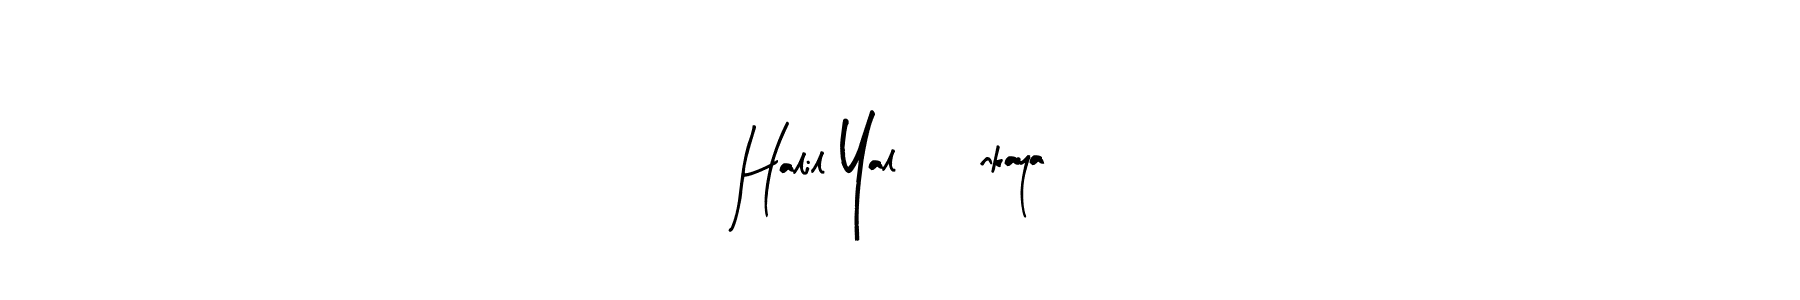 Halil Yal    nkaya